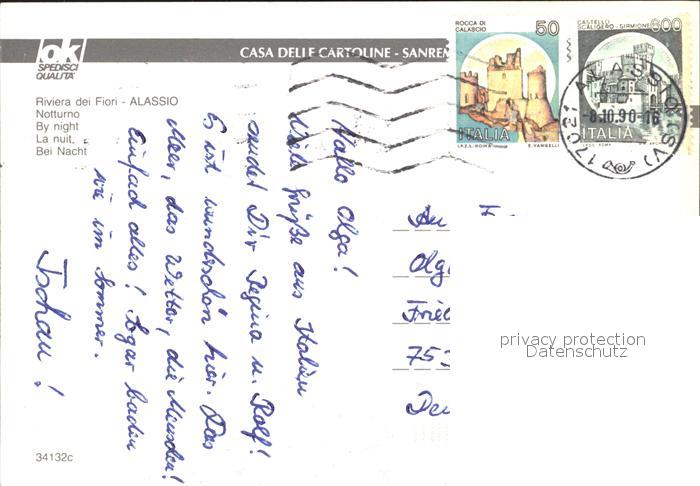 ok
SPEDISCI
QUALITA'
CASA DELLE CARTOLINE - SANREM
ROCCA DI
CALASCIO
50
ITALIA
I.P.Z.S.-ROMA
E. VANGELLI
CASTELLO
SCALIGERO - SIRMIONE
600
ITALIA
17021 ALASSIO (SV)
-8.10.90-16
Riviera dei Fiori - ALASSIO
Notturno
By night
La nuit,
Bei Nacht
Hallo Olga!
Viele Grüße aus Italien
sendet Dir Regina u. Rolf!
Es ist wunderschön hier. Das
Meer, das Wetter, die Menschen!
Einfach alles! Sogar baden
wie im Sommer.
Tschau!
An
Olg
Frie
75
Deu
privacy protection
Datenschutz
34132c